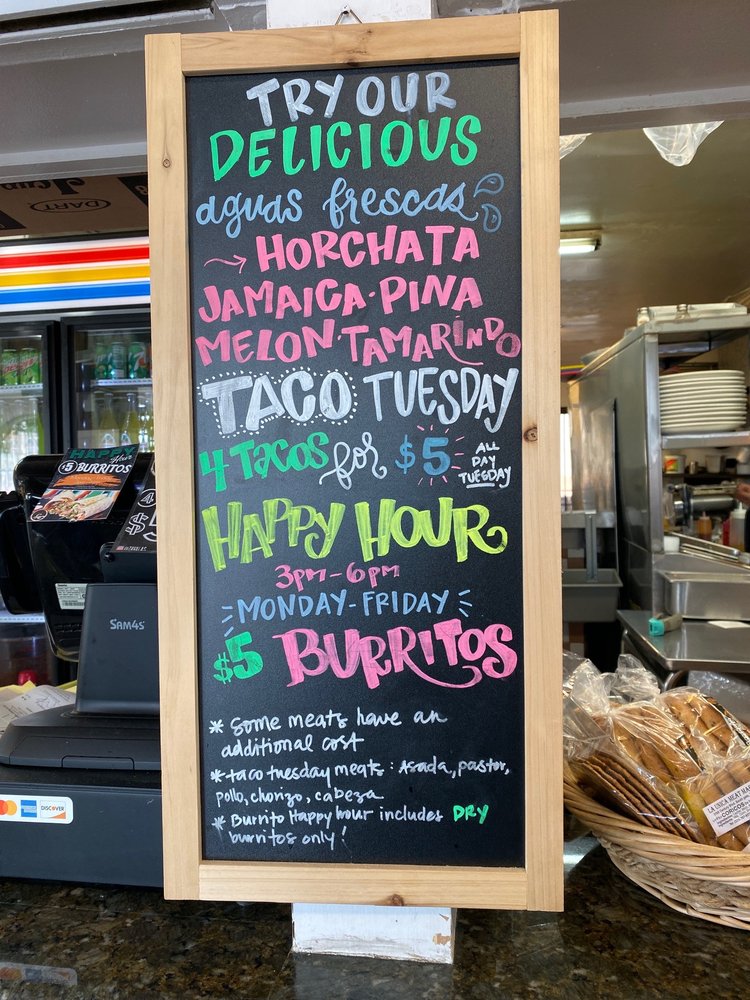 TRY OUR
DELICIOUS
aguas frescas
→ HORCHATA
JAMAICA·PINA
MELON·TAMARINDO
TACO TUESDAY
4 TACOS for $5 ALL DAY TUESDAY
HAPPY HOUR
3PM-6PM
MONDAY-FRIDAY
$5 BURRITOS
* Some meats have an
additional cost
* taco tuesday meats: Asada, pastor,
pollo, chorizo, cabeza
* Burrito Happy hour includes DRY
burritos only!
DART
HAPPY
Hour
$5 BURRITOS
SAM4S
DISCOVER
LA UNICA MEAT MA